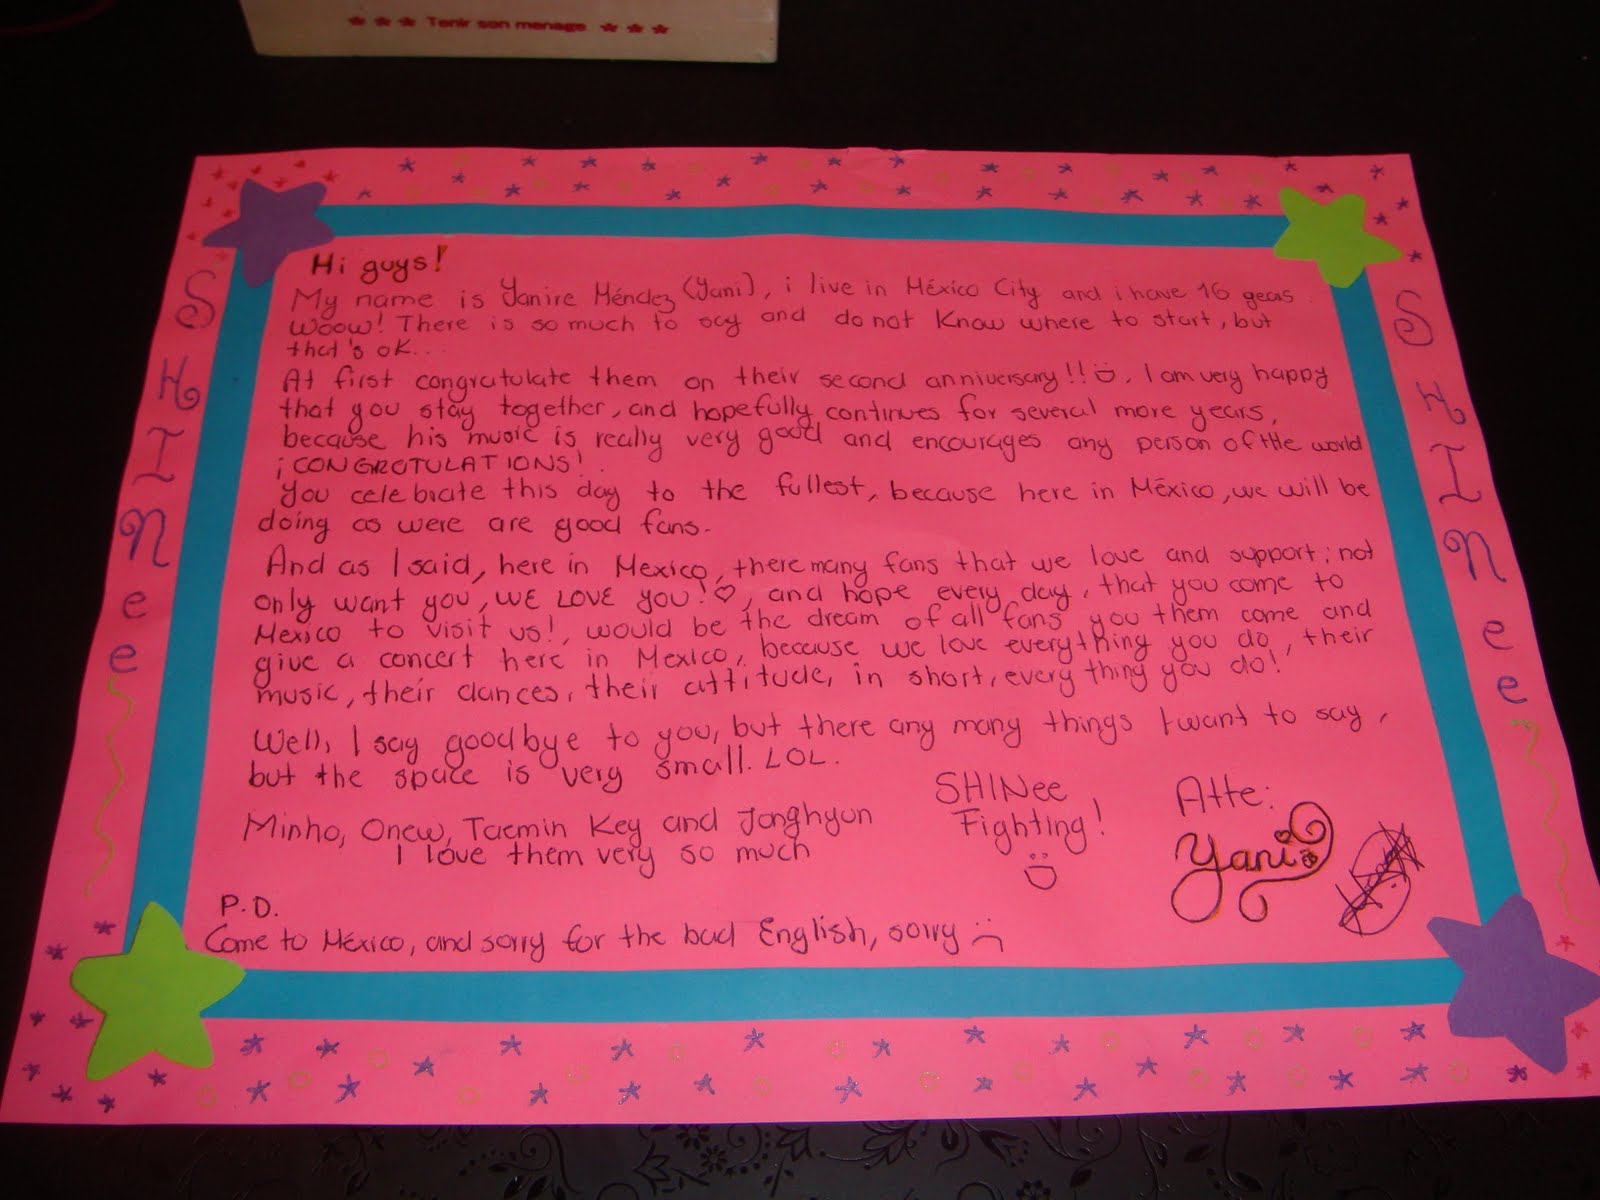 ★ ★ ★ Tenir son menage ★ ★ ★
SHINee
SHINee
Hi guys!
My name is Yanire Méndez (Yani), i live in México City and i have 16 years.
Woow! There is so much to say and do not know where to start, but
that's ok...
At first congratulate them on their second anniversary!! Ü. I am very happy
that you stay together, and hopefully continues for several more years,
because his music is really very good and encourages any person of the world
¡CONGROTULATIONS!.
You celebrate this day to the fullest, because here in México, we will be
doing as were are good fans.
And as I said, here in Mexico, there many fans that we love and support; not
only want you, WE LOVE YOU!♡, and hope every day, that you come to
Mexico to visit us!, would be the dream of all fans you them come and
give a concert here in Mexico, because we love everything you do, their
music, their dances, their attitude, in short, every thing you do!
Well, I say goodbye to you, but there any many things I want to say,
but the space is very small. LOL.
Minho, Onew, Taemin Key and Jonghyun
I love them very so much
SHINee
Fighting!
Atte:
Yani
P.D.
Come to México, and sorry for the bad English, sorry